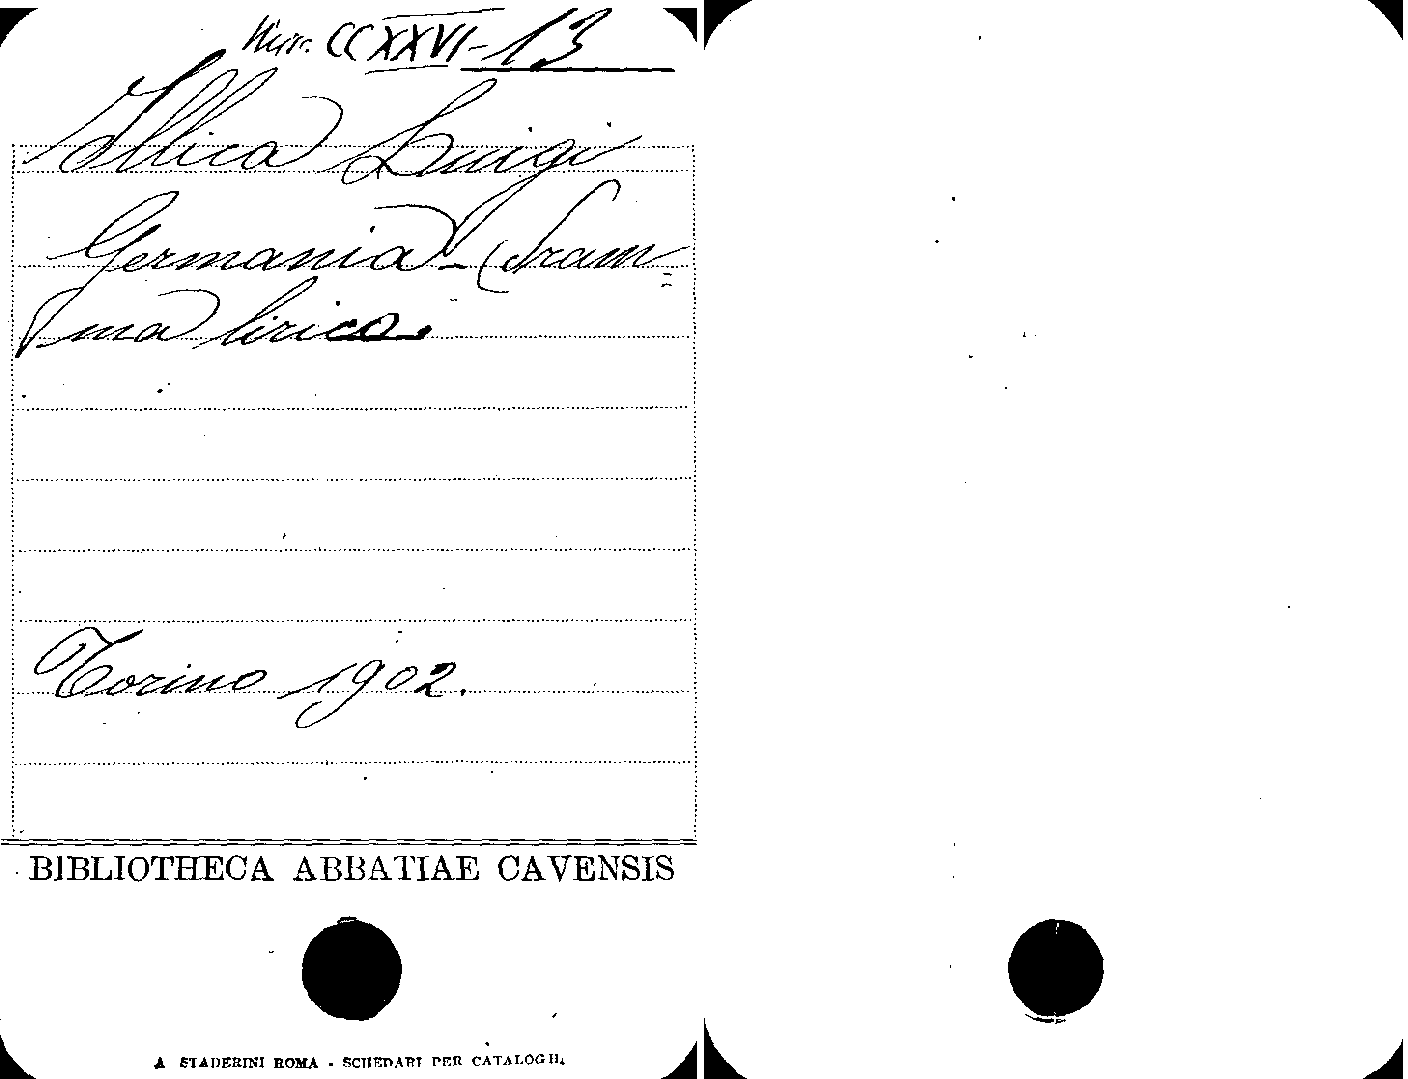 Misc. CCXXVI-13
Illica Luigi
Germania - (Dram=
ma lirico.
Torino 1902.
BIBLIOTHECA ABBATIAE CAVENSIS
A STADERINI ROMA - SCHEDARI PER CATALOGHI